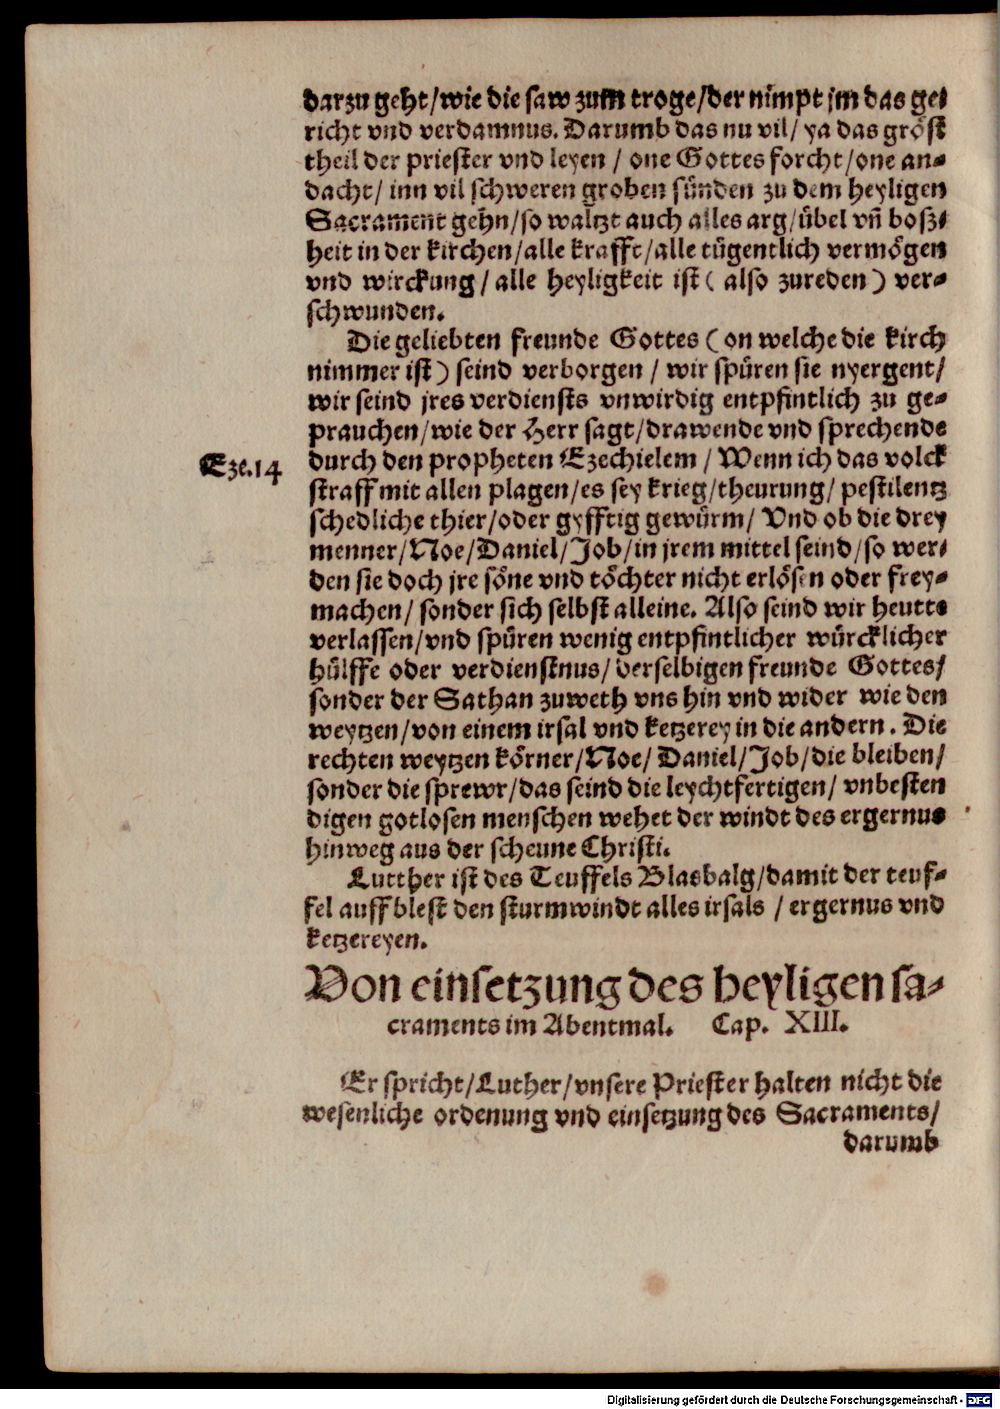 darzu geht/wie die saw zum troge/der nimpt jm das ge⸗
richt vnd verdamnus. Darumb das nu vil/ ya das gröst
theil der priester vnd leyen / one Gottes forcht/one an⸗
dacht/ inn vil schweren groben sünden zu dem heyligen
Sacrament gehn/so waltzt auch alles arg/übel vñ boß⸗
heit in der kirchen/alle krafft/alle tügentlich vermögen
vnd wirckung/ alle heyligkeit ist ( also zureden ) ver⸗
schwunden.
Die geliebten freunde Gottes ( on welche die kirch
nimmer ist ) seind verborgen / wir spüren sie nyergent/
wir seind jres verdiensts vnwirdig entpfintlich zu ge⸗
prauchen/wie der Herr sagt/drawende vnd sprechende
durch den propheten Ezechielem / Wenn ich das volck
Eze.14
straff mit allen plagen/es sey krieg/theurung/ pestilentz
schedliche thier/oder gyfftig gewürm/ Vnd ob die drey
menner/Noe/Daniel/Job/in jrem mittel seind/so wer⸗
den sie doch jre söne vnd töchter nicht erlösen oder frey⸗
machen/ sonder sich selbst alleine. Also seind wir heutte
verlassen/vnd spüren wenig entpfintlicher würcklicher
hülffe oder verdienstnus/ derselbigen freunde Gottes/
sonder der Sathan zuweth vns hin vnd wider wie den
weytzen/von einem irsal vnd ketzerey in die andern. Die
rechten weytzen körner/Noe/ Daniel/Job/die bleiben/
sonder die sprewr/das seind die leychtfertigen/ vnbesten
digen gotlosen menschen wehet der windt des ergernus
hinweg aus der scheune Christi.
Lutther ist des Teuffels Blasbalg/damit der teuf⸗
fel auffblest den sturmwindt alles irsals / ergernus vnd
ketzereyen.
Von einsetzung des heyligen sa⸗
craments im Abentmal. Cap. XIII.
Er spricht/Luther/vnsere Priester halten nicht die
wesenliche ordenung vnd einsetzung des Sacraments/
darumb
Digitalisierung gefördert durch die Deutsche Forschungsgemeinschaft - DFG